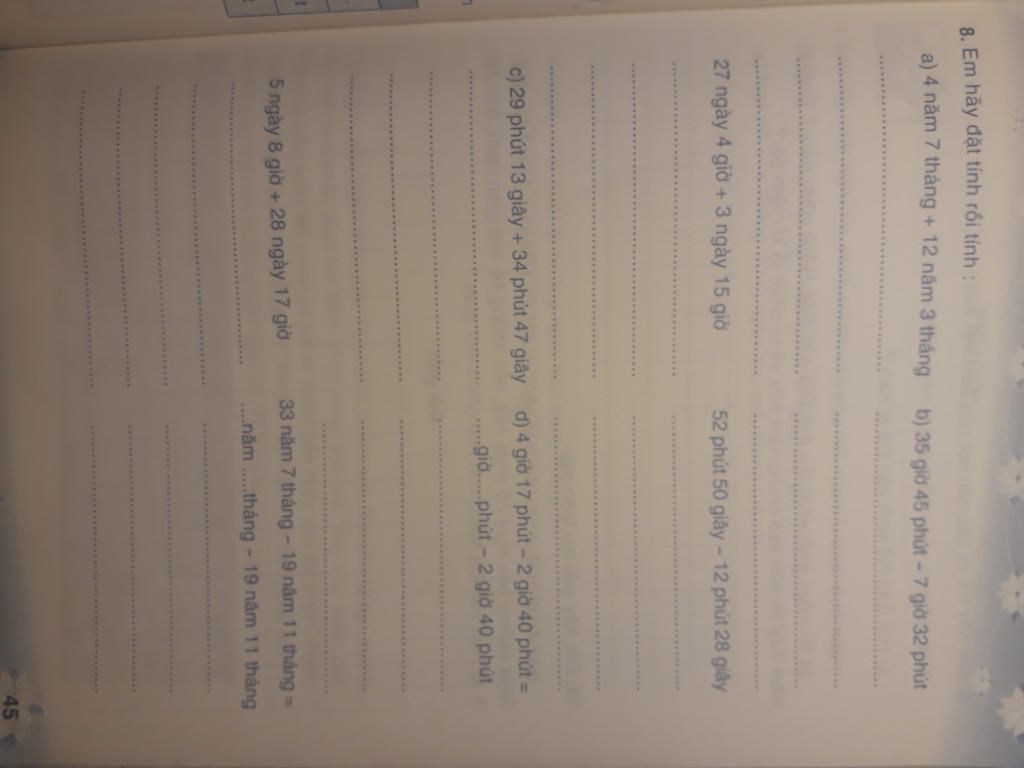 8. Em hãy đặt tính rồi tính :
a) 4 năm 7 tháng + 12 năm 3 tháng b) 35 giờ 45 phút – 7 giờ 32 phút
27 ngày 4 giờ + 3 ngày 15 giờ 52 phút 50 giây – 12 phút 28 giây
c) 29 phút 13 giây + 34 phút 47 giây d) 4 giờ 17 phút – 2 giờ 40 phút =
....giờ....phút – 2 giờ 40 phút
5 ngày 8 giờ + 28 ngày 17 giờ 33 năm 7 tháng – 19 năm 11 tháng =
....năm ....tháng – 19 năm 11 tháng
45